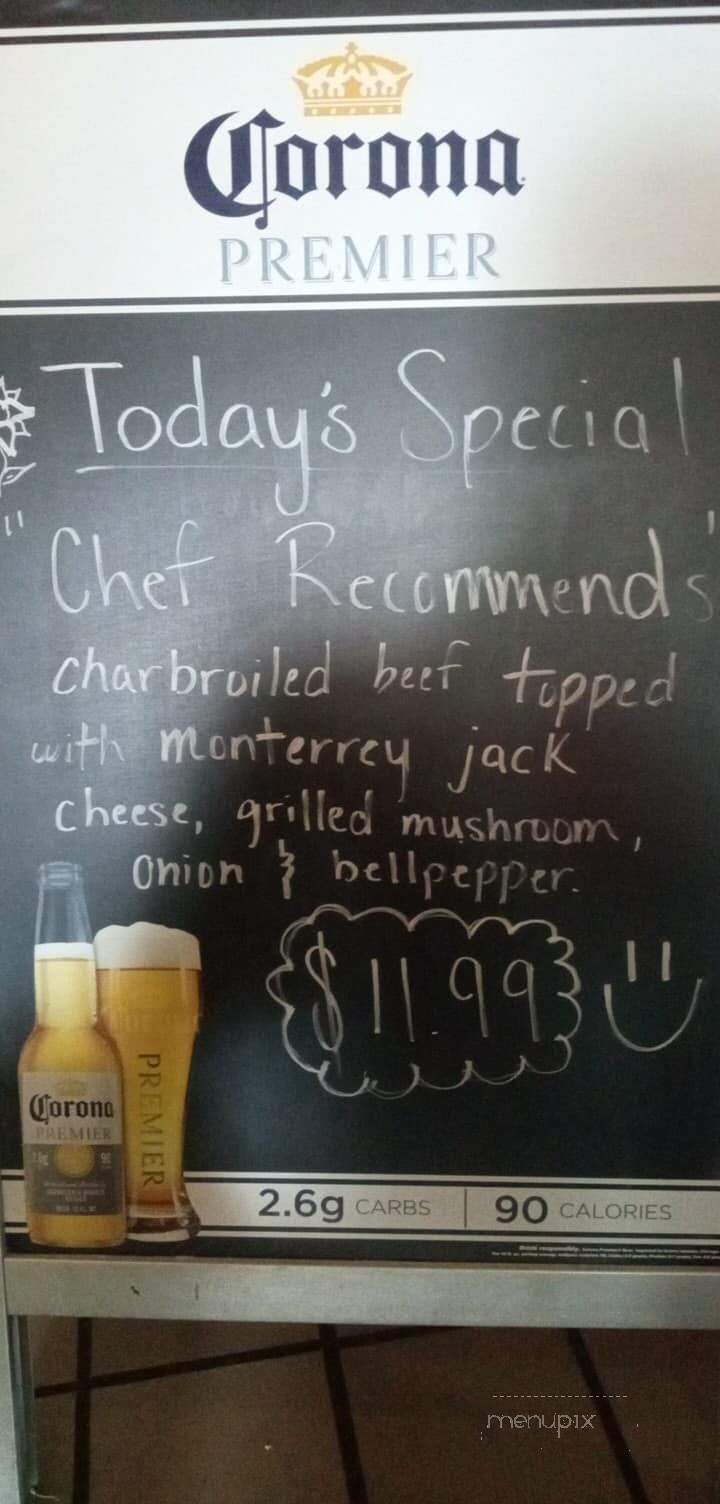 Corona
PREMIER
Today's Special
"Chef Recommends"
charbroiled beef topped
with monterrey jack
cheese, grilled mushroom,
onion & bellpepper.
$11.99
PREMIER
Corona
PREMIER
2.6g CARBS | 90 CALORIES
Drink responsibly.
menupix